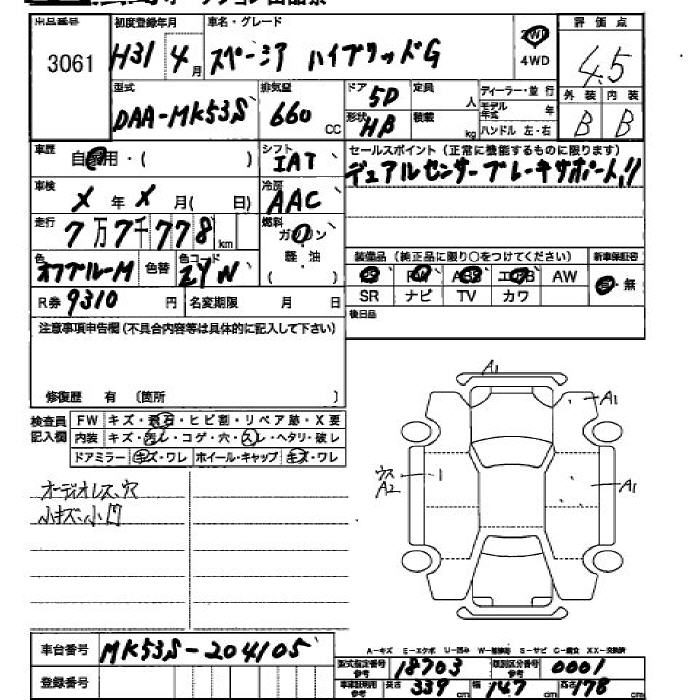 出品番号 初度登録年月 車名・グレード 評価点
3061 H31 4月 スペーシア ハイブリッドG 2WD 4WD 4.5
型式 排気量 ドア 5D 定員 人 ディーラー・並行 外装 内装
DAA-MK53S 660 CC 形状 HB 積載 kg モデル年式 年 B B
ハンドル 左・右
車歴 自家用・( ) シフト IAT セールスポイント(正常に機能するものに限ります)
車検 X年X月( 日) 冷房 AAC デュアルセンサーブレーキサポート!!
走行 7万7千778km 燃料 ガソリン
軽油
( )
色 オフブルーM 色替 色コード ZYN 装備品(純正品に限り○をつけてください) 新車保証書
PS PW ABS エアB AW 有・無
R券 9310円 名変期限 月 日 SR ナビ TV カワ
注意事項申告欄(不具合内容等は具体的に記入して下さい) 後日品
修復歴 有 〔箇所 〕
検査員記入欄 FW キズ・飛石・ヒビ割・リペア跡・X要
内装 キズ・汚レ・コゲ・穴・スレ・ヘタリ・破レ
ドアミラー キズ・ワレ ホイール・キャップ キズ・ワレ
A1
A1
ウスA2
A1
オーディオレス、穴
小キズ、小凹
車台番号 MK53S-204105
登録番号
A-キズ E-エクボ U-凹み W-補修跡 S-サビ C-腐食 XX-交換済
型式指定番号 参考 18703 類別区分番号 参考 0001
車体証明用 参考 長さ 339cm 幅 147cm 高さ 178cm